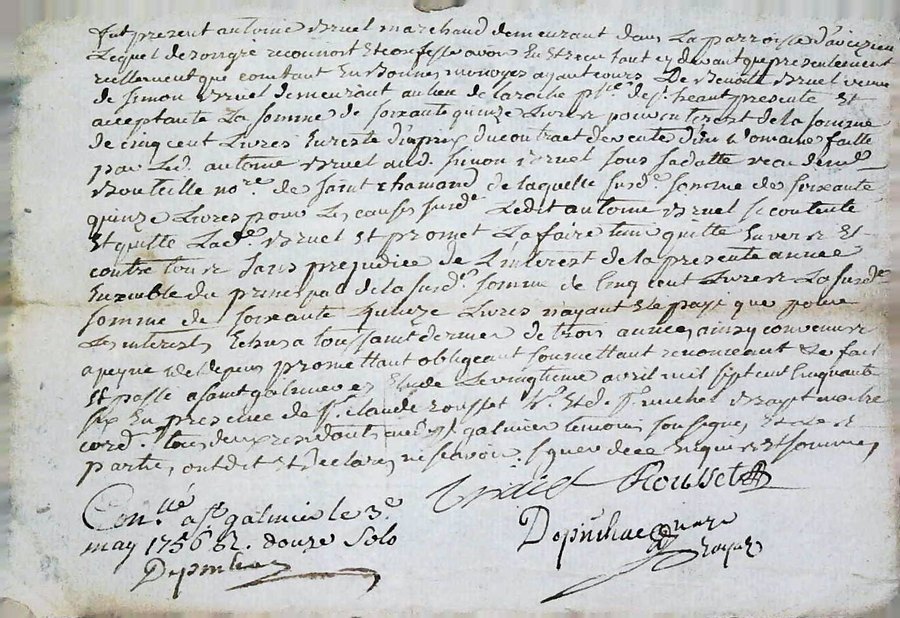 fut present antoine Bruel marchand demeurant dans La parroisse d'aveizieu
Lequel de son gre reconnoit et confesse avoir eu et receu tant cy devant que presentement
reellement que comtant en bonnes monoyes ayant cours De Benoite Bruel veuve
de simon Bruel demeurant au lieu de la roche psse de st heant presente Et
acceptante La somme de soixante quinze Livres pour interest de la somme
de cinq cent Livres en reste du prix du contract de vente d'un Domaine faitte
par Led. antoine Bruel aud. simon Bruel sous sa datte receu de me
Bouteille nore de saint chamand de laquelle susd. somme de soixante
quinze Livres pour Les causes susd. Ledit antoine Bruel se contente
Et quitte Lad. Bruel Et promet La faire tenir quitte Envers Et
contre tous sans prejudice de L'interest de la presente année
Ensemble du principal de la susd. somme de Cinq cent Livres La susde
somme de soixante quinze Livres n'ayant Eté payé que pour
Les interests Echus a toussaint dernier de trois années, ainsy convenu
a peyne de depens promettant obligeant soumettant renonceant Le fait
Et passé a saint galmier Etude Le vingtieme avril mil sept cent Cinquante
six En presence de sr. claude rousset Et de sr. michel maitre
cord. tous deux residants st galmier temoins soussignes, Et Les
parties, ont dit Et declaré ne scavoir signer de ce Enquis Et sommes,
Rousset
Conllé a st galmier le 3e
may 1756 R. douze sols
Depinhac
Depinhac nore
royal